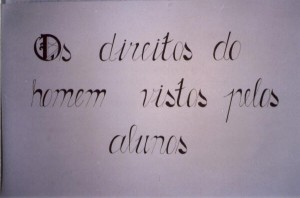 Os direitos do
homem vistos pelos
alunos